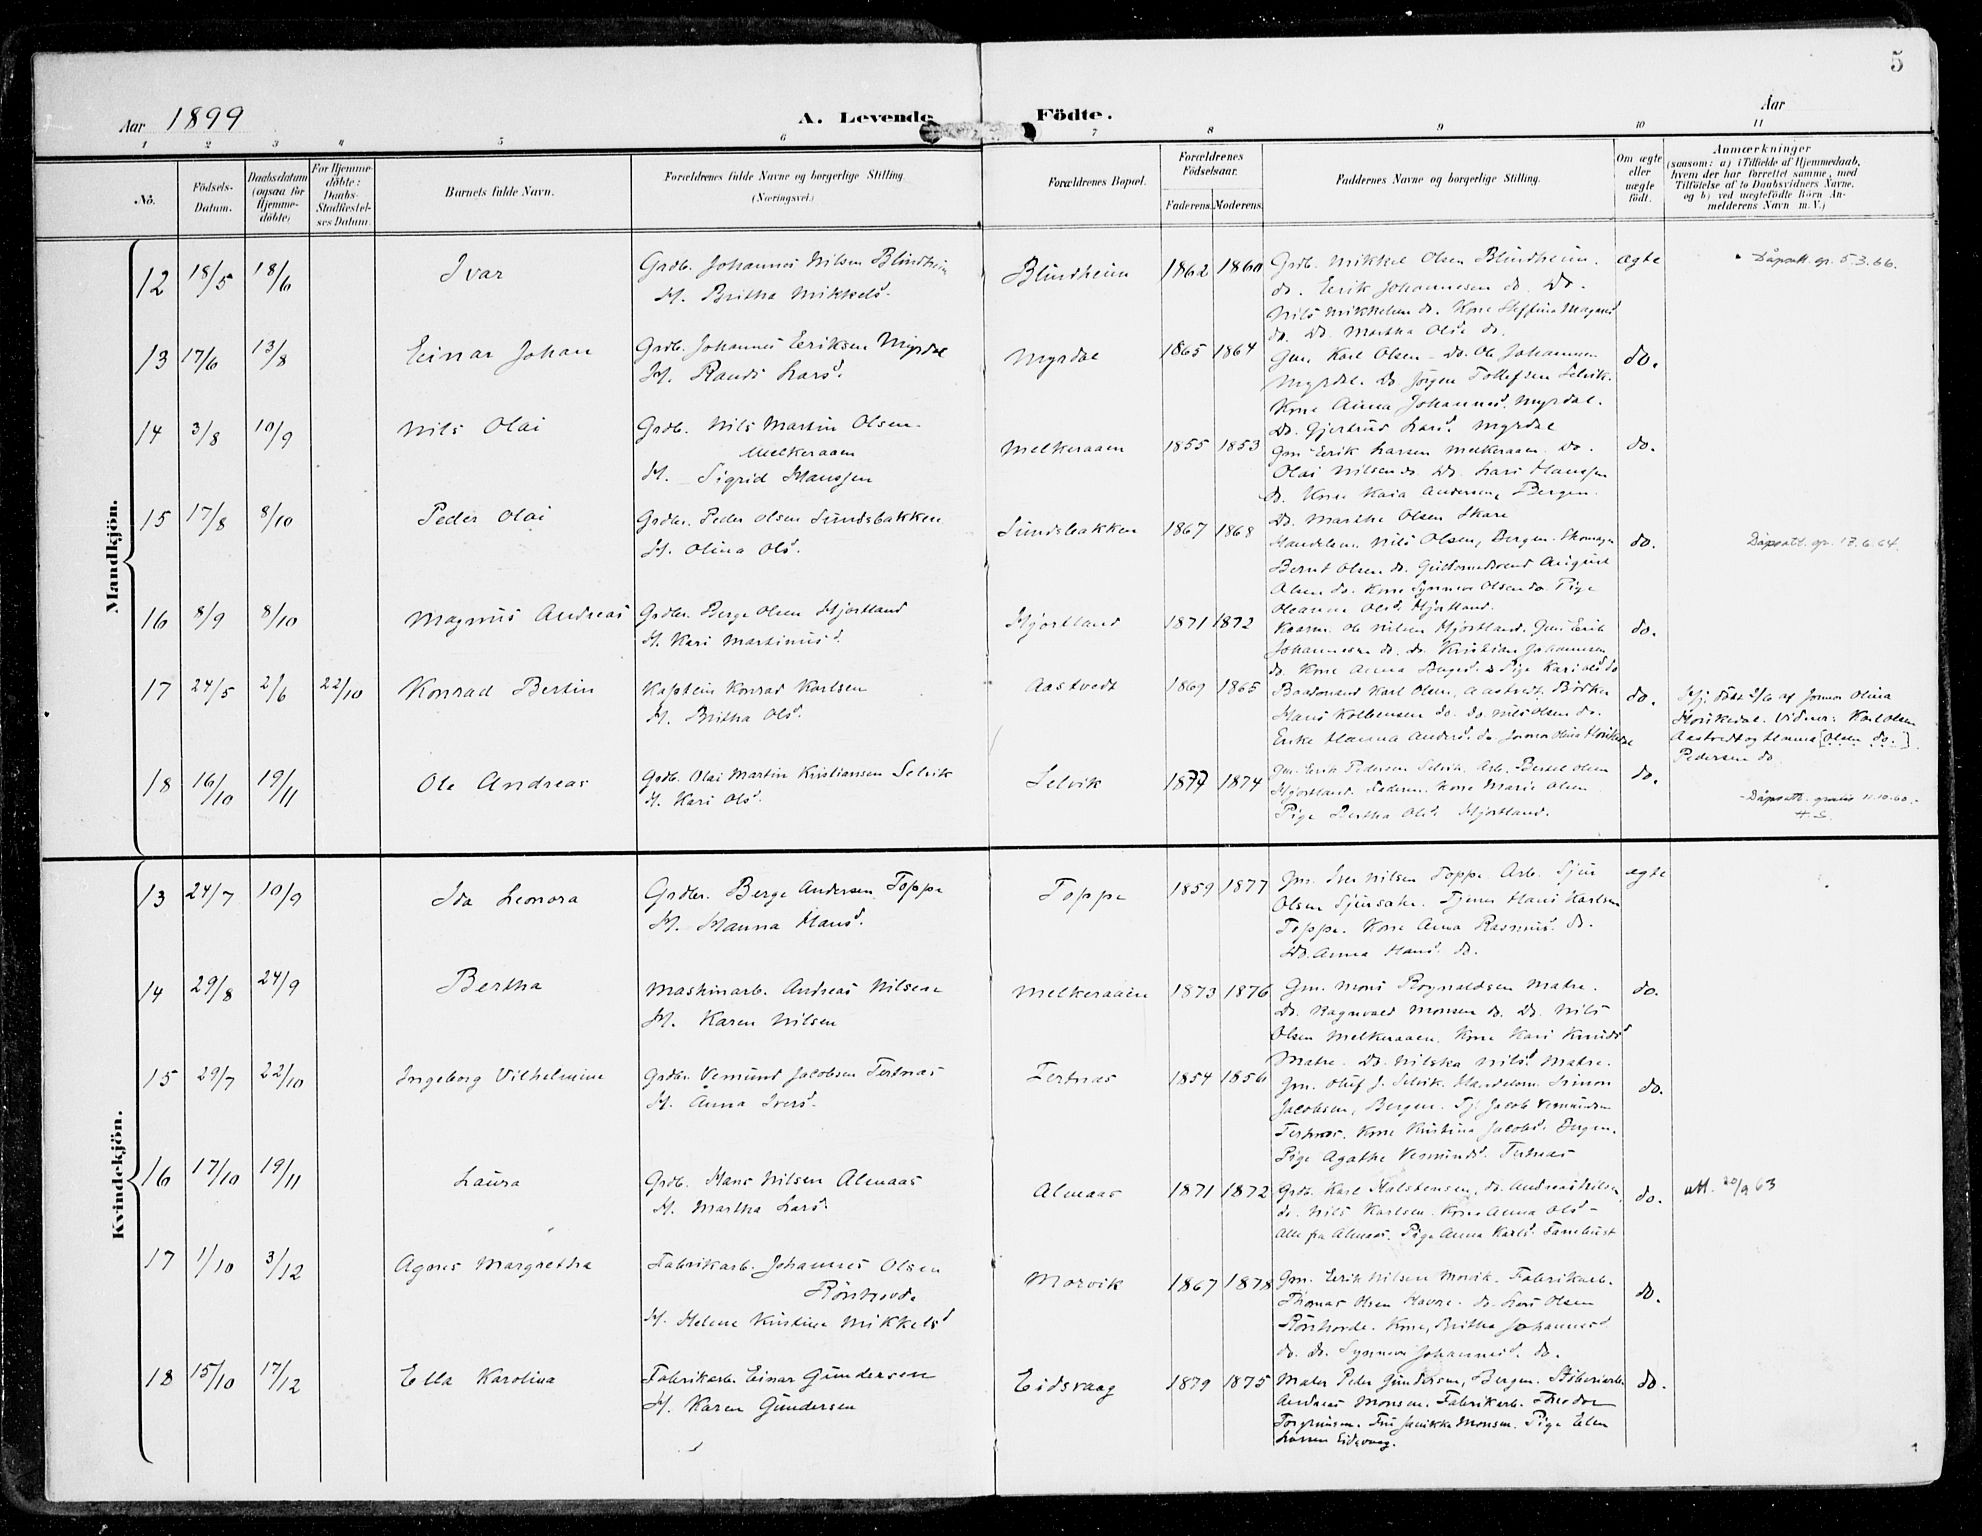 5
Aar 1899
A. Levende Födte.
Aar
1 2 3 4 5 6 7 8 9 10 11
No.
Födsels-Datum.
Daabsdatum (ogsaa for Hjemme-döbte)
For Hjemme-döbte: Daabs-Stadfæstel-ses Datum
Barnets fulde Navn.
Forældrenes fulde Navne og borgerlige Stilling.
(Næringsvei.)
Forældrenes Bopæl.
Forældrenes Födselsaar.
Faderens. Moderens.
Faddernes Navne og borgerlige Stilling.
Om ægte eller uægte födt.
Anmærkninger
(saasom: a) i Tilfælde af Hjemmedaab,
hvem der har forrettet samme, med
Tilföielse af to Daabsvidners Navne,
og b) ved uægtefödte Börn An-
melderens Navn m. V.)
Mandkjön.
12 18/5 18/6 Ivar Grdb. Johannes Nilsen Blindheim Blindheim 1862 1860 Grdb. Mikkel Olsen Blindheim. ægte Dåpsatt. gr. 5.3.66.
H. Britha Mikkelsd. do. Erik Johannesen do. Do.
Nils Mikkelsen do. Kone Steffina Magnusd
do. Do. Martha Olsd do.
13 17/6 13/8 Einar Johan Grdb. Johannes Eriksen Myrdal Myrdal 1865 1864 Gm. Karl Olsen do. Ole Johannesen do.
H. Randi Larsd. Myrdal. Do Jörgen Tollefsen Selvik.
Kone Anna Johannesd. Myrdal.
Do. Gjertrud Larsd. Myrdal
14 3/8 10/9 Nils Olai Grdb. Nils Martin Olsen Melkeraaen 1855 1853 Gm Erik Larsen Melkeraaen. Do. do.
Melkeraaen Olai Nilsen do. Do. Lars Hanssen
H. Sigrid Hanssen do. Kone Kaia Andersen, Bergen.
Do. Marthe Olsen Skare
15 17/8 8/10 Peder Olai Grdbr. Peder Olsen Sundsbakken Sundsbakken 1867 1868 Handelsm. Nils Olsen, Bergen. do. Dåpsatt. gr. 17.6.64.
H. Olina Olsd. Bernt Olsen do. August
Olsen do. Kone Synneva Olsen do. Pige
Oleanna Olsd. Hjortland.
16 8/9 8/10 Magnus Andreas Grdbr. Berge Olsen Hjortland Hjortland 1871 1872 Ole Nilsen Hjortland. Gm. Erik do.
H. Kari Martinusd. Johannesen do. do. Kristian Johannesen
do. Kone Anna do. Pige Kari Olsd do
17 24/5 2/6 22/10 Konrad Bertin Kaptein Konrad Karlsen Aastvedt 1869 1865 Baadsmand Karl Olsen, Aastvedt. Bödker do. Hj. döbt 2/6 af Jomor Olina
H. Britha Olsd. Hans Kolbensen do. do. Nils Olsen do. Horsikedal. Vidner: Karl Olsen
Enke Hanna Andersd. do Jomor Olina Aastvedt og Hanna [Olsen do.]
Pedersen do.
18 16/10 19/11 Ole Andreas Grdb. Olai Martin Kristiansen Selvik Selvik 1877 1874 Gm. Erik Pedersen Selvik. Arb. Bertel Olsen do.
H. Kari Olsd. Hjortland. Faderen. Kone Marie Olsen Dåpsatt. gratis 11.10.60.
Pige Bertha Olsd. Hjortland. H.S.
Kvindekjön.
13 24/7 10/9 Ida Leonora Grdbr. Berge Andersen Toppe Toppe 1859 1877 Gm. Iver Nilsen Toppe. Arb. Sjur ægte
H. Hanna Hansd. Olsen. Tjener Hans Karlsen
Toppe. Kone Anna Rasmusd. do.
Do. Anna Hansd. do.
14 29/8 24/9 Bertha Maskinarb. Andreas Nilsen Melkeraaen 1873 1876 Gm. Mons Rognaldsen Matre. do.
H. Karen Nilsen Do. Ragnvald Monsen do. Do. Nils
Olsen Melkeraaen. Kone Kari Knudsd
Matre. Do. Nilska Nilsd. Matre.
15 29/7 22/10 Ingeborg Vilhelmine Grdbr. Vemund Jacobsen Tertnæs Tertnæs 1854 1856 Gm. Oluf J. Selvik. Handelsm. Simon do.
H. Anna Iversd. Jacobsen, Bergen. Tj. Jacob Vemundsen
Tertnæs. Kone Kristina Jacobsd. Bergen.
Pige Agathe Vemundsd. Tertnæs
16 17/10 19/11 Laura Grdb. Hans Nilsen Almaas Almaas 1871 1872 Grdb. Karl Halstensen, do. Andreas Nilsen, do. att. 20/9 63
H. Martha Larsd. do. Nils Karlsen. Kone Anna Olsd
Alle fra Almaas. Pige Anna Karlsd.
17 1/10 3/12 Agnes Margretha Fabrikarb. Johannes Olsen Morvik 1867 1878 Gm. Erik Nilsen Morvik. Fabrikarb. do.
Rörhovde Thomas Olsen Havre. do. Lars Olsen
H. Helene Kristine Mikkelsd Rörhovde. Kone, Britha Johannesd
do. do. Synneva Johannesd. do.
18 15/10 17/12 Ella Karolina Fabrikarb. Einar Gundersen Eidsvaag 1879 1875 Maler Peder Gundersen, Bergen. Stiberiarb. do.
H. Karen Gundersen Andreas Monsen. Fabrikarb. Theodor
Torgersen. Fru Janikke Monsen. Pige Elen
Larsen Eidsvaag.